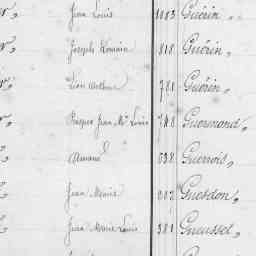 Jean Louis 1003 Guérin "
Joseph Romain 818 Guérin "
Léon Arthur 781 Guérin "
Prosper Jean Mie Louis 748 Guermond "
Armand 638 Guerrois "
Jean Marie Guesdon "
Jean Marie Louis 381 Gueussel "